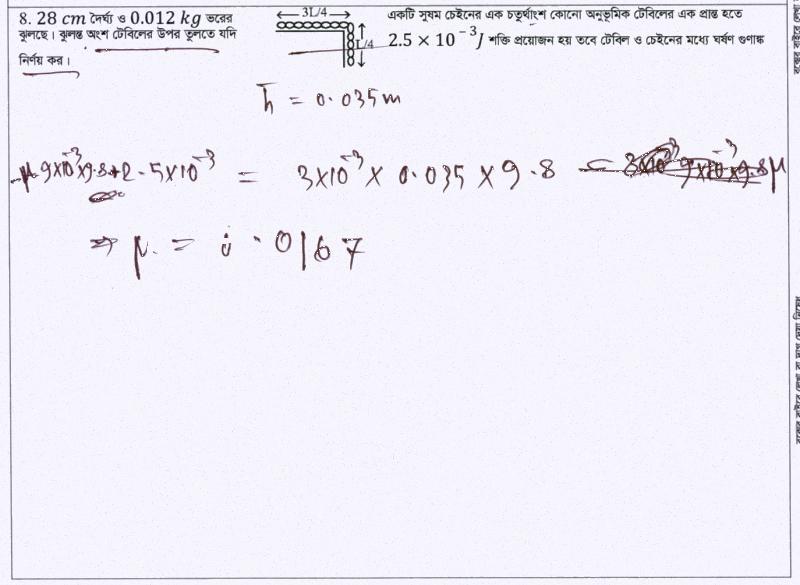 8. 28 cm দৈর্ঘ্য ও 0.012 kg ভরের একটি সুষম চেইনের এক চতুর্থাংশ কোনো অনুভূমিক টেবিলের এক প্রান্ত হতে
3L/4
L/4
ঝুলছে। ঝুলন্ত অংশ টেবিলের উপর তুলতে যদি 2.5 × 10⁻³J শক্তি প্রয়োজন হয় তবে টেবিল ও চেইনের মধ্যে ঘর্ষণ গুণাঙ্ক
নির্ণয় কর।
h = 0.035m
-μ 9×10⁻³×9.8+2.5×10⁻³ = 3×10⁻³ × 0.035 × 9.8
⇒ μ = 0.0167